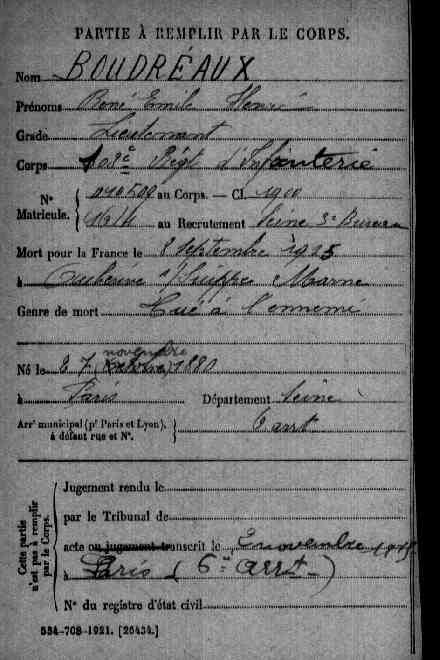 PARTIE À REMPLIR PAR LE CORPS.
Nom BOUDRÉAUX
Prénoms René Emile Henri
Grade Lieutenant
Corps 108e Régt d'Infanterie
N° Matricule. au Corps. — Cl. 1900
au Recrutement Seine 3e Bureau
Mort pour la France le 8 Septembre 1915
à Auberive s/ Suippe Marne
Genre de mort Tué à l'ennemi
novembre
Né le 27 (octobre) 1880
à Paris Département Seine
Arrt municipal (pr Paris et Lyon), à défaut rue et N°. 6 arrt
Cette partie n'est pas à remplir par le Corps.
Jugement rendu le
par le Tribunal de
acte ou jugement transcrit le 2 novembre 1915
à Paris (6e arrt)
N° du registre d'état civil
534-708-1921. [26434.]